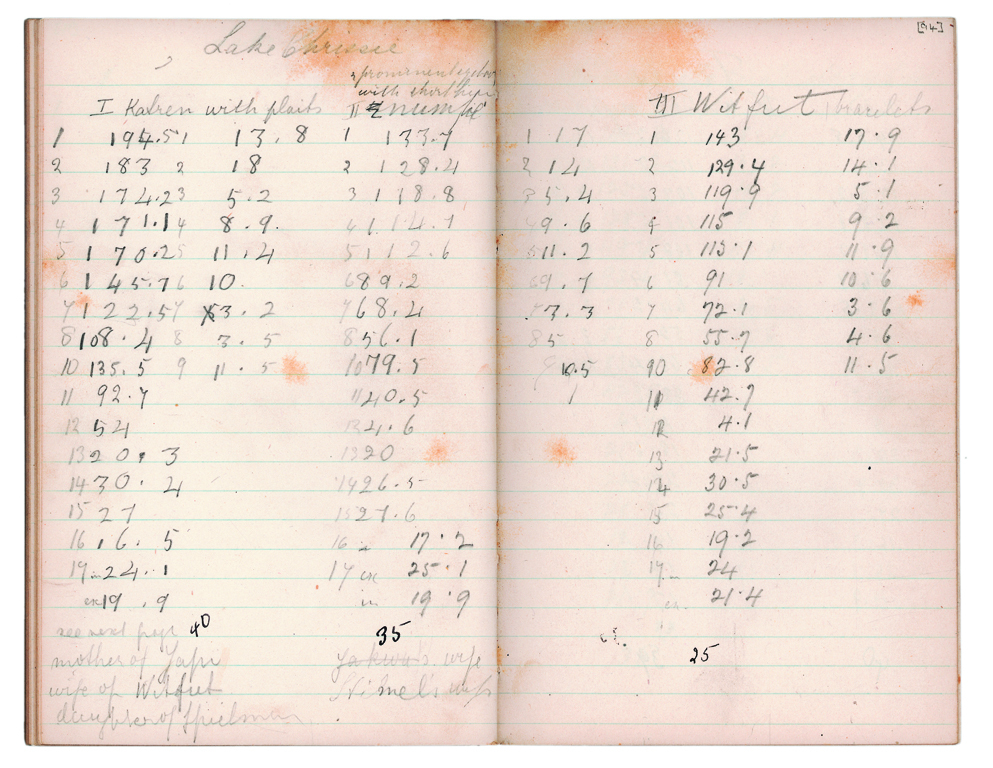 [84]
Lake Chrissie
prominent
with short
I Katren with plaits II numpie III Witfut bracelets
1 194.5 1 13.8 1 133.7 1 17 1 143 17.9
2 183 2 18 2 128.4 2 14 2 129.4 14.1
3 174.2 3 5.2 3 118.8 3 5.4 3 119.9 5.1
4 171.1 4 8.9. 4 114.7 4 9.6 4 115 9.2
5 170.2 5 11.4 5 112.6 5 11.2 5 113.1 11.9
6 145.7 6 10. 6 89.2 6 9.7 6 91 10.6
7 122.5 7 3.2 7 68.4 7 3.3 7 72.1 3.6
8 108.4 8 3.5 8 56.1 8 5 8 55.7 4.6
10 135.5 9 11.5 10 79.5 9 10.5 90 82.8 11.5
11 92.7 11 40.5 11 42.7
12 54 12 4.6 12 4.1
13 20.3 13 20 13 21.5
14 30.4 14 26.5 14 30.5
15 27 15 27.6 15 25.4
16 16.5 16 17.2 16 19.2
17 24.1 17 ex 25.1 17 24
ex 19.9 in 19.9 ex. 21.4
see next page 40 35
mother of Japi Yakwa's wife 25
wife of Witfut
daughter of Spielman